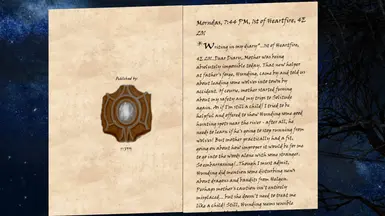 Published by:
Morndas, 7:44 PM, 1st of Heartfire,
4E 201
*Writing in my diary* ...1st of Heartfire,
4E 201. Dear Diary, Mother was being
absolutely impossible today. That new helper
at father's forge, Hunding, came by and told us
about leading some wolves into town by
accident. Of course, mother started fussing
about my safety and my trips to Solitude
again. As if I'm still a child! I tried to be
helpful and offered to show Hunding some good
hunting spots near the river - after all, he
needs to learn if he's going to stop running from
wolves! But mother practically had a fit,
going on about how improper it would be for me
to go into the woods alone with some stranger.
So embarrassing! ..Though I must admit,
Hunding did mention some disturbing news
about dragons and bandits from Helgen.
Perhaps mother's caution isn't entirely
misplaced... but she doesn't need to treat me
like a child! Still, Hunding seems